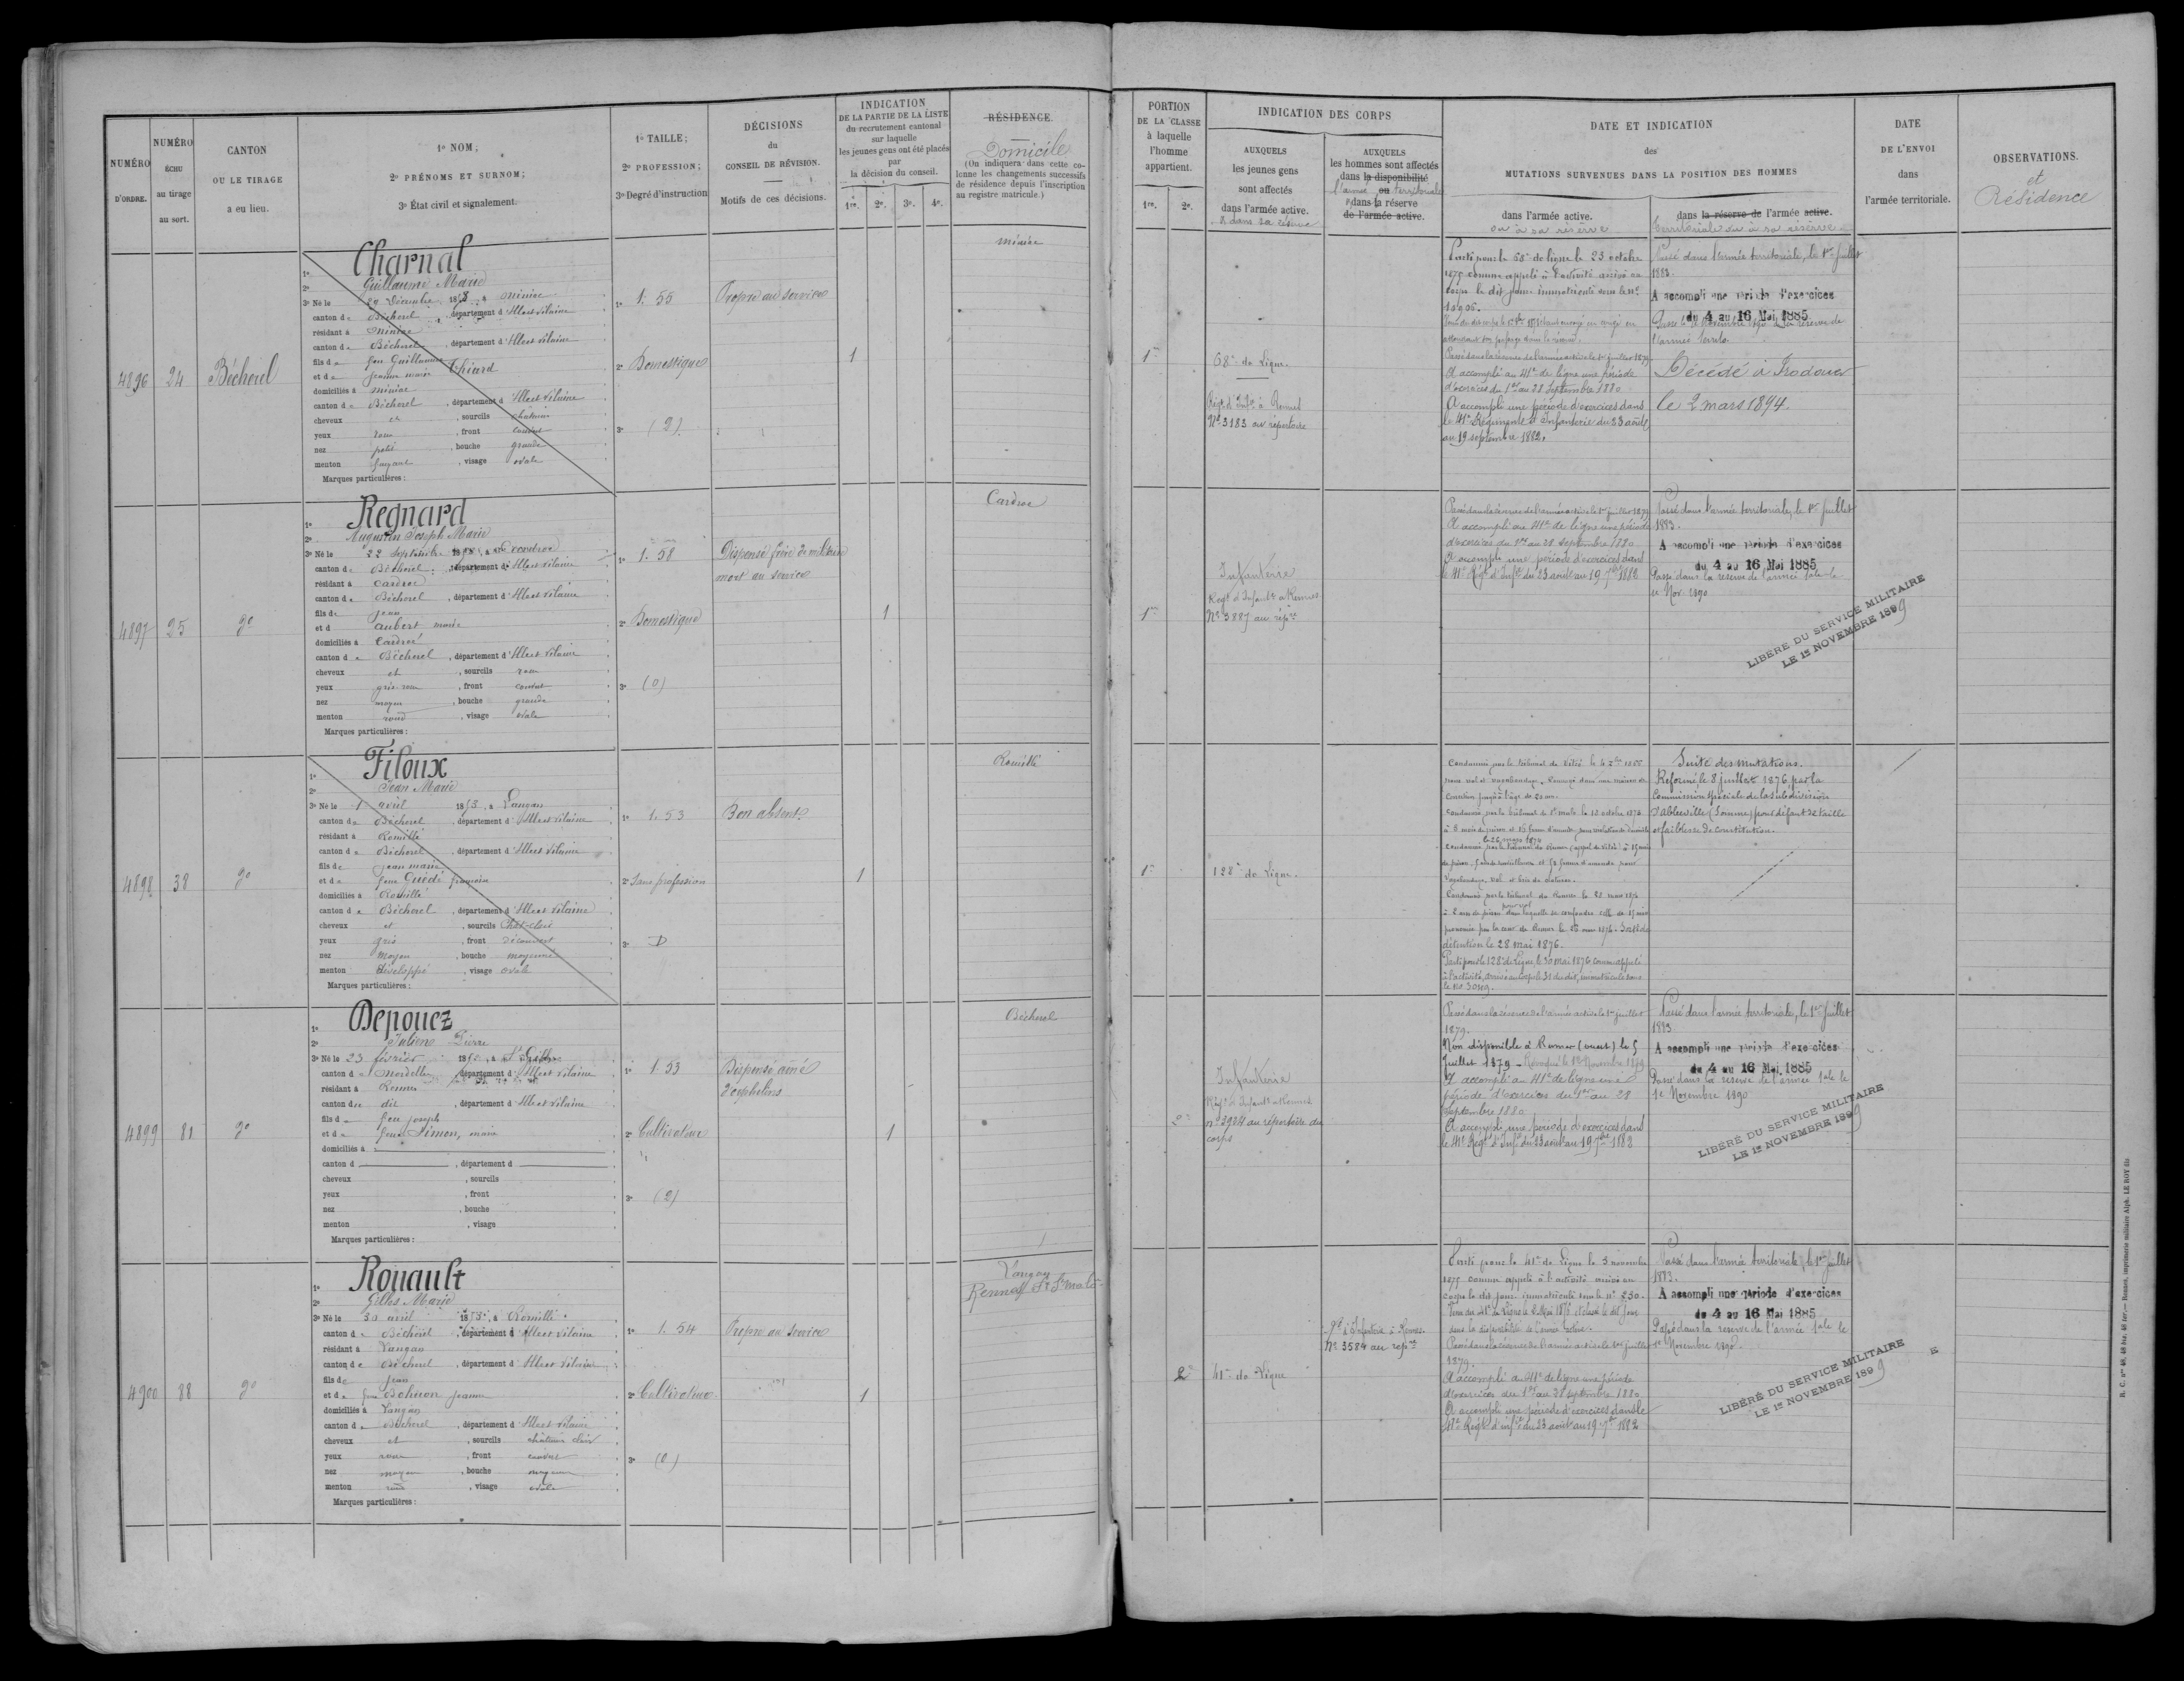 NUMÉRO
D'ORDRE.
NUMÉRO
ÉCHU
au tirage
au sort.
CANTON
OU LE TIRAGE
a eu lieu.
1º NOM;
2º PRÉNOMS ET SURNOM;
3º État civil et signalement.
1º TAILLE;
2º PROFESSION;
3º Degré d'instruction
DÉCISIONS
du
CONSEIL DE RÉVISION.
Motifs de ces décisions.
INDICATION
DE LA PARTIE DE LA LISTE
du recrutement cantonal
sur laquelle
les jeunes gens ont été placés
par
la décision du conseil.
1re. 2e. 3e. 4e.
RÉSIDENCE.
Domicile
(On indiquera dans cette co-
lonne les changements successifs
de résidence depuis l'inscription
au registre matricule.)
PORTION
DE LA CLASSE
à laquelle
l'homme
appartient.
1re. 2e.
INDICATION DES CORPS
AUXQUELS
les jeunes gens
sont affectés
dans l'armée active.
& dans sa réserve
AUXQUELS
les hommes sont affectés
dans la disponibilité
l'armée ou territoriale
dans la réserve
de l'armée active.
DATE ET INDICATION
des
MUTATIONS SURVENUES DANS LA POSITION DES HOMMES
dans l'armée active.
ou à sa réserve
dans la réserve de l'armée active.
territoriale ou à sa réserve
DATE
DE L'ENVOI
dans
l'armée territoriale.
OBSERVATIONS.
et
Résidence
4896 24 Bécherel
1º Charnal
2º Guillaume Marie
3º Né le 29 Décembre 1853, à Miniac
canton de Bécherel, département d'Ille et Vilaine
résidant à Miniac
canton de Bécherel, département d'Ille et Vilaine
fils de feu Guillaume
et de Jeanne Marie Thiard
domiciliés à Miniac
canton de Bécherel, département d'Ille et Vilaine
cheveux et, sourcils châtain
yeux roux, front
nez petit, bouche grande
menton fuyant, visage ovale
Marques particulières :
1º 1.55
2º Domestique
3º (2)
Propre au service
1
Miniac
1re
68e de Ligne.
Régt d'Infie à Rennes
Nº 3183 au répertoire
Parti pour le 68e de ligne le 23 octobre
1875 comme appelé à l'activité arrivé au
corps le dit jour immatriculé sous le nº
Passé dans la réserve de l'armée active le 1er juillet 1879.
A accompli au 41e de ligne une période
d'exercices du 1er au 28 Septembre 1880
A accompli une période d'exercices dans
le 41e Régiment d'Infanterie du 23 août
au 19 septembre 1882.
Passé dans l'armée territoriale, le 1er juillet
1883.
A accompli une période d'exercices
du 4 au 16 Mai 1885
l'armée
Décédé à Irodouer
le 2 mars 1894.
4897 25 dº
1º Regnard
2º Augustin Joseph Marie
3º Né le 22 Septembre
canton de Bécherel, département d'Ille et Vilaine
résidant à Cardroc
canton de Bécherel, département d'Ille et Vilaine
fils de Jean
et d Aubert Marie
domiciliés à Cardroc
canton de Bécherel, département d'Ille et Vilaine
cheveux et, sourcils roux
yeux gris roux, front couvert
nez moyen, bouche grande
menton rond, visage ovale
Marques particulières :
1º 1.58
2º Domestique
3º (0)
Dispensé frère de militaire
mort au service
1
Cardroc
1re
Infanterie
Régt d'Infant à Rennes
Nº 3887 au répre
Passé dans la réserve de l'armée active le 1er juillet 1879
A accompli au 41e de ligne une période
d'exercices du 1er au 28 septembre 1880
A accompli une période d'exercices dans
le 41e Régt d'Infie du 23 août au 19 7bre 1882
Passé dans l'armée territoriale, le 1er juillet
1883.
A accompli une période d'exercices
du 4 au 16 Mai 1885
Passé dans la réserve de l'armée tale le
1er Nov. 1890
LIBÉRÉ DU SERVICE MILITAIRE
LE 1er NOVEMBRE 1899
4898 38 dº
1º Filoux
2º Jean Marie
3º Né le 1 avril 1853, à Langan
canton de Bécherel, département d'Ille et Vilaine
résidant à Romillé
canton de Bécherel, département d'Ille et Vilaine
fils de Jean Marie
et de feue Guédé
domiciliés à Romillé
canton de Bécherel, département d'Ille et Vilaine
cheveux et, sourcils Chât-clair
yeux gris, front découvert
nez moyen, bouche moyenne
menton développé, visage ovale
Marques particulières :
1º 1.53
2º Sans profession
3º D
Bon absent
1
Romillé
1re
128e de Ligne.
Condamné par le tribunal de Vitré le
pour vol et vagabondage. Envoyé dans une maison de
correction jusqu'à l'âge de 20 ans.
détention le 28 mai 1876.
Parti pour le 128e de Ligne, le 30 mai 1876 comme appelé
à l'activité, arrivé au corps le 31 du dit, immatriculé sous
le no 3049.
Suite des mutations.
Réformé, le 8 juillet 1876 par la
Commission spéciale de la subdivision
d'Abbeville (Somme) pour défaut de taille
et faiblesse de constitution.
4899 81 dº
1º Depouez
2º Julien Pierre
3º Né le 23 février
canton de Mordelles, département d'Ille et Vilaine
résidant à Rennes
canton de dit, département d'Ille et Vilaine
fils de feu Joseph
et de feue Simon, Marie
domiciliés à
canton d, département d
cheveux, sourcils
yeux, front
nez, bouche
menton, visage
Marques particulières :
1º 1.53
2º Cultivateur
3º (2)
Dispensé aîné
d'orphelins
1
Bécherel
2e
Infanterie
Régt d'Infant à Rennes
nº 3924 au répertoire du
corps
Passé dans la réserve de l'armée active le 1er juillet
1879.
Non disponible à Rennes (ouest) le 5
Juillet 1879
A accompli au 41e de ligne une
période d'exercices du 1er au 28
Septembre 1880
A accompli une période d'exercices dans
le 41e Régt d'Infie du 23 août au 19 7bre 1882
Passé dans l'armée territoriale, le 1er juillet
1883
A accompli une période d'exercices
du 4 au 16 Mai 1885
Passé dans la réserve de l'armée tale le
1er Novembre 1890
LIBÉRÉ DU SERVICE MILITAIRE
LE 1er NOVEMBRE 1899
4900 88 dº
1º Rouault
2º Gilles Marie
3º Né le 30 avril 1853, à Romillé
canton de Bécherel, département d'Ille et Vilaine
résidant à Langan
canton de Bécherel, département d'Ille et Vilaine
fils de Jean
et de feue Bohuon Jeanne
domiciliés à Langan
canton de Bécherel, département d'Ille et Vilaine
cheveux et, sourcils châtain clair
yeux roux, front couvert
nez moyen, bouche moyenne
menton rond, visage ovale
Marques particulières :
1º 1.54
2º Cultivateur
3º (0)
Propre au service
1
Langan
2e
41e de Ligne
Rgt d'Infanterie à Rennes
Nº 3584 au repre
Parti pour le 41e de Ligne le 5 novembre
1875 comme appelé à l'activité arrivé au
corps le dit jour immatriculé sous le nº 250.
Passé dans la réserve de l'armée active le 1er juillet
1879.
A accompli au 41e de ligne une période
d'exercices du 1er au 28 septembre 1880
A accompli une période d'exercices dans le
41e Régt d'infie du 23 août au 19 7bre 1882
Passé dans l'armée territoriale, le 1er juillet
1883.
A accompli une période d'exercices
du 4 au 16 Mai 1885
Passé dans la réserve de l'armée tale le
1er Novembre 1890.
LIBÉRÉ DU SERVICE MILITAIRE
LE 1er NOVEMBRE 1899
R. C. nos 48, 48 bis, 48 ter.— Rennes, imprimerie militaire Alph. LE ROY fils